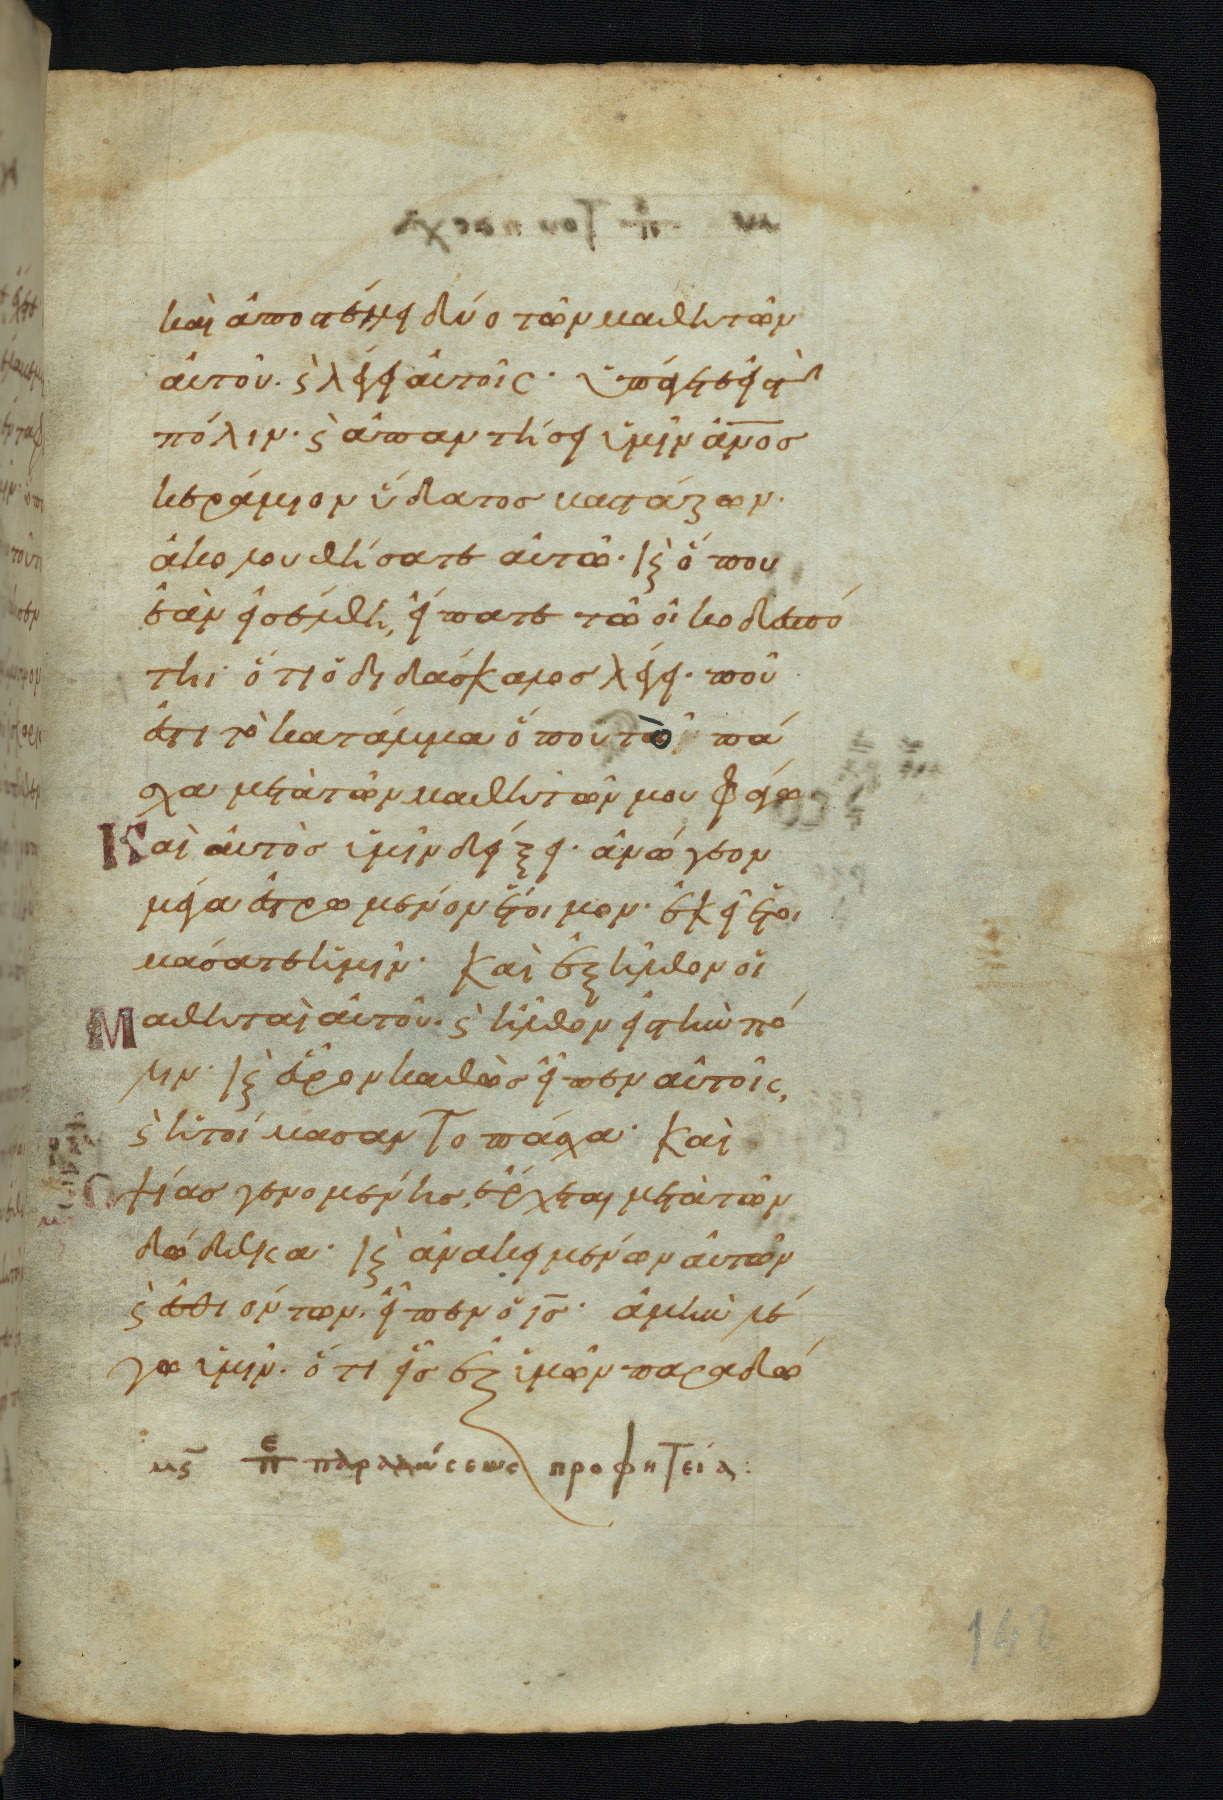 καὶ ἀποστέλλει δύο τῶν μαθητῶν
αὐτοῦ. ϛ λέγει αὐτοῖς· ὑπάγετε εἰς τὴν
πόλιν· ϛ ἀπαντήσει ὑμῖν ἄνος
κεράμιον ὕδατος βαστάζων·
ἀκολουθήσατε αὐτῶ· κϛ ὅπου
ἐὰν εἰσέλθη, εἴπατε τῶ οἰκοδεσπό
τη· ὅτι ὁ διδάσκαλος λέγει· ποῦ
ἐστι τὸ κατάλυμα ὅπου τὸ πά
σχα μετὰ τῶν μαθητῶν μου φάγω·
Καὶ αὐτὸς ὑμῖν δείξει· ἀνώγεον
μέγα ἐστρωμένον ἕτοιμον· ἐκεῖ ἑτοι
μάσατε ἡμῖν· Καὶ ἐξῆλθον οἱ
Μαθηταὶ αὐτοῦ. ϛ ἦλθον εἰς τὴν πό
λιν· κϛ εὗρον καθὼς εἶπεν αὐτοῖς,
ϛ ἡτοίμασαν το πάσχα· Καὶ
Οψίας γενομένης, ἔρχεται μετὰ τῶν
δώδεκα· κϛ ἀνακειμένων αὐτῶν
ϛ ἐσθιόντων. εἶπεν ὁ ις· ἀμὴν λέ
γω ὑμῖν. ὅτι εἷς ἐξ ὑμῶν παραδώ
μϛ πε παραδώσεως προφητεία:
142